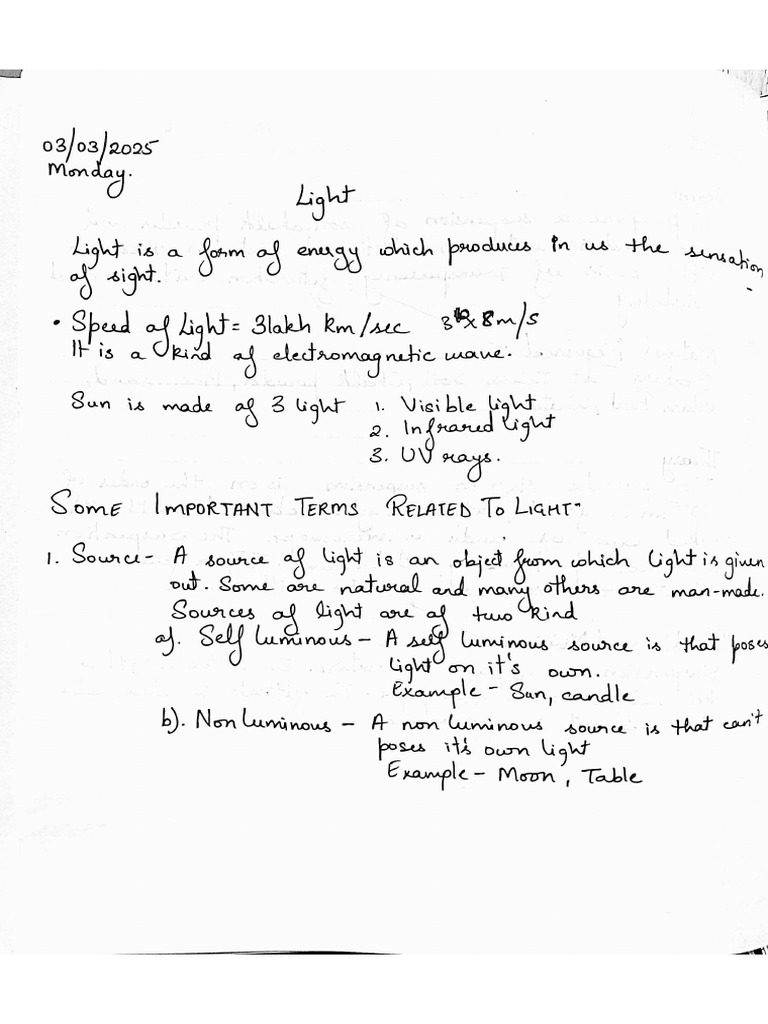 03/03/2025
Monday.
Light
Light is a form of energy which produces in us the sensation
of sight.
• Speed of Light = 3lakh km/sec 3 x 8 m/s
It is a kind of electromagnetic wave.
Sun is made of 3 light 1. Visible light
2. Infrared light
3. UV rays.
SOME IMPORTANT TERMS RELATED TO LIGHT-
1. Source- A source of light is an object from which light is given
out. Some are natural and many others are man-made.
Sources of light are of two kind
a). Self luminous - A self luminous source is that poses
light on it's own.
Example - Sun, candle
b). Non luminous - A non luminous source is that can't
poses it's own light
Example - Moon, Table